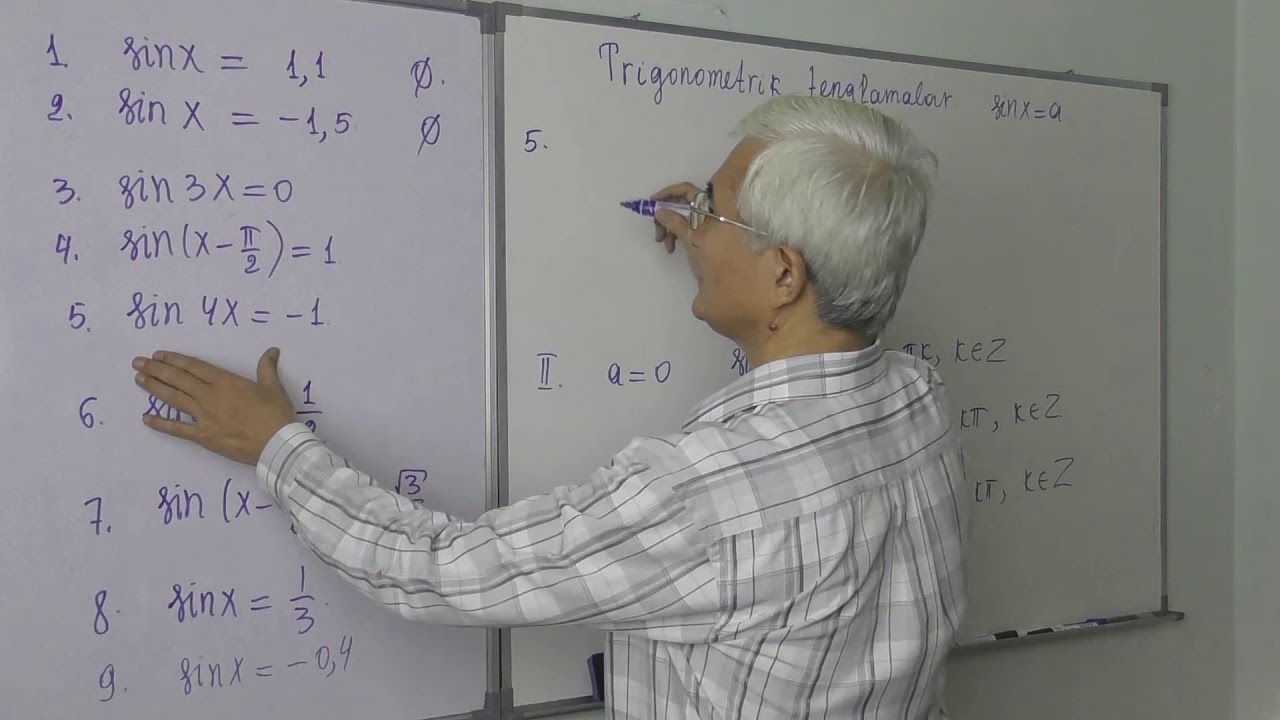 1. sinx = 1,1 ∅.
2. sin x = -1,5. ∅
3. sin 3x = 0
4. sin(x - π/2) = 1
5. sin 4x = -1.
6. 1/2
7. sin (x - √3
8. sinx = 1/3.
9. sinx = -0,4
Trigonometrik tenglamalar sinx = a
5.
II. a = 0 πk, k∈Z
kπ, k∈Z
kπ, k∈Z